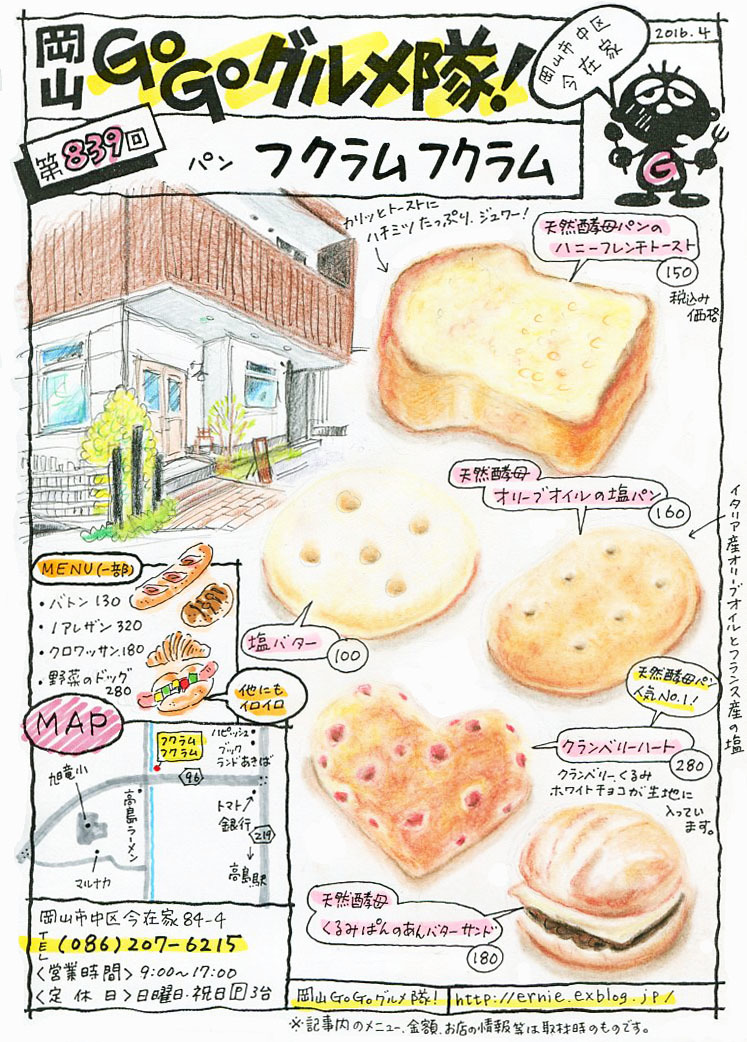 2016.4
岡山
GoGoグルメ隊!
岡山市中区
今在家
第839回
パン フクラムフクラム
G
カリッとトーストに
ハチミツたっぷり、ジュワー!
天然酵母パンの
ハニーフレンチトースト
150
税込み
価格
天然酵母
オリーブオイルの塩パン
160
イタリア産オリーブオイルとフランス産の塩
塩バター
100
MENU(一部)
・バトン 130
・ノアレザン 320
・クロワッサン 180
・野菜のドッグ
280
他にも
イロイロ
天然酵母パン
人気No.1!
クランベリーハート
280
クランベリー、くるみ
ホワイトチョコが生地に
入ってい
ます。
天然酵母
くるみぱんのあんバターサンド
180
MAP
フクラム
フクラム
ハピッシュ
ブック
ランドあきば
96
旭竜小
高島ラーメン
トマト
銀行
219
マルナカ
高島駅
岡山市中区今在家84-4
TEL(086)207-6215
<営業時間> 9:00~17:00
<定休日> 日曜日・祝日 P3台
岡山GoGoグルメ隊! http://ernie.exblog.jp/
※記事内のメニュー、金額、お店の情報等は取材時のものです。